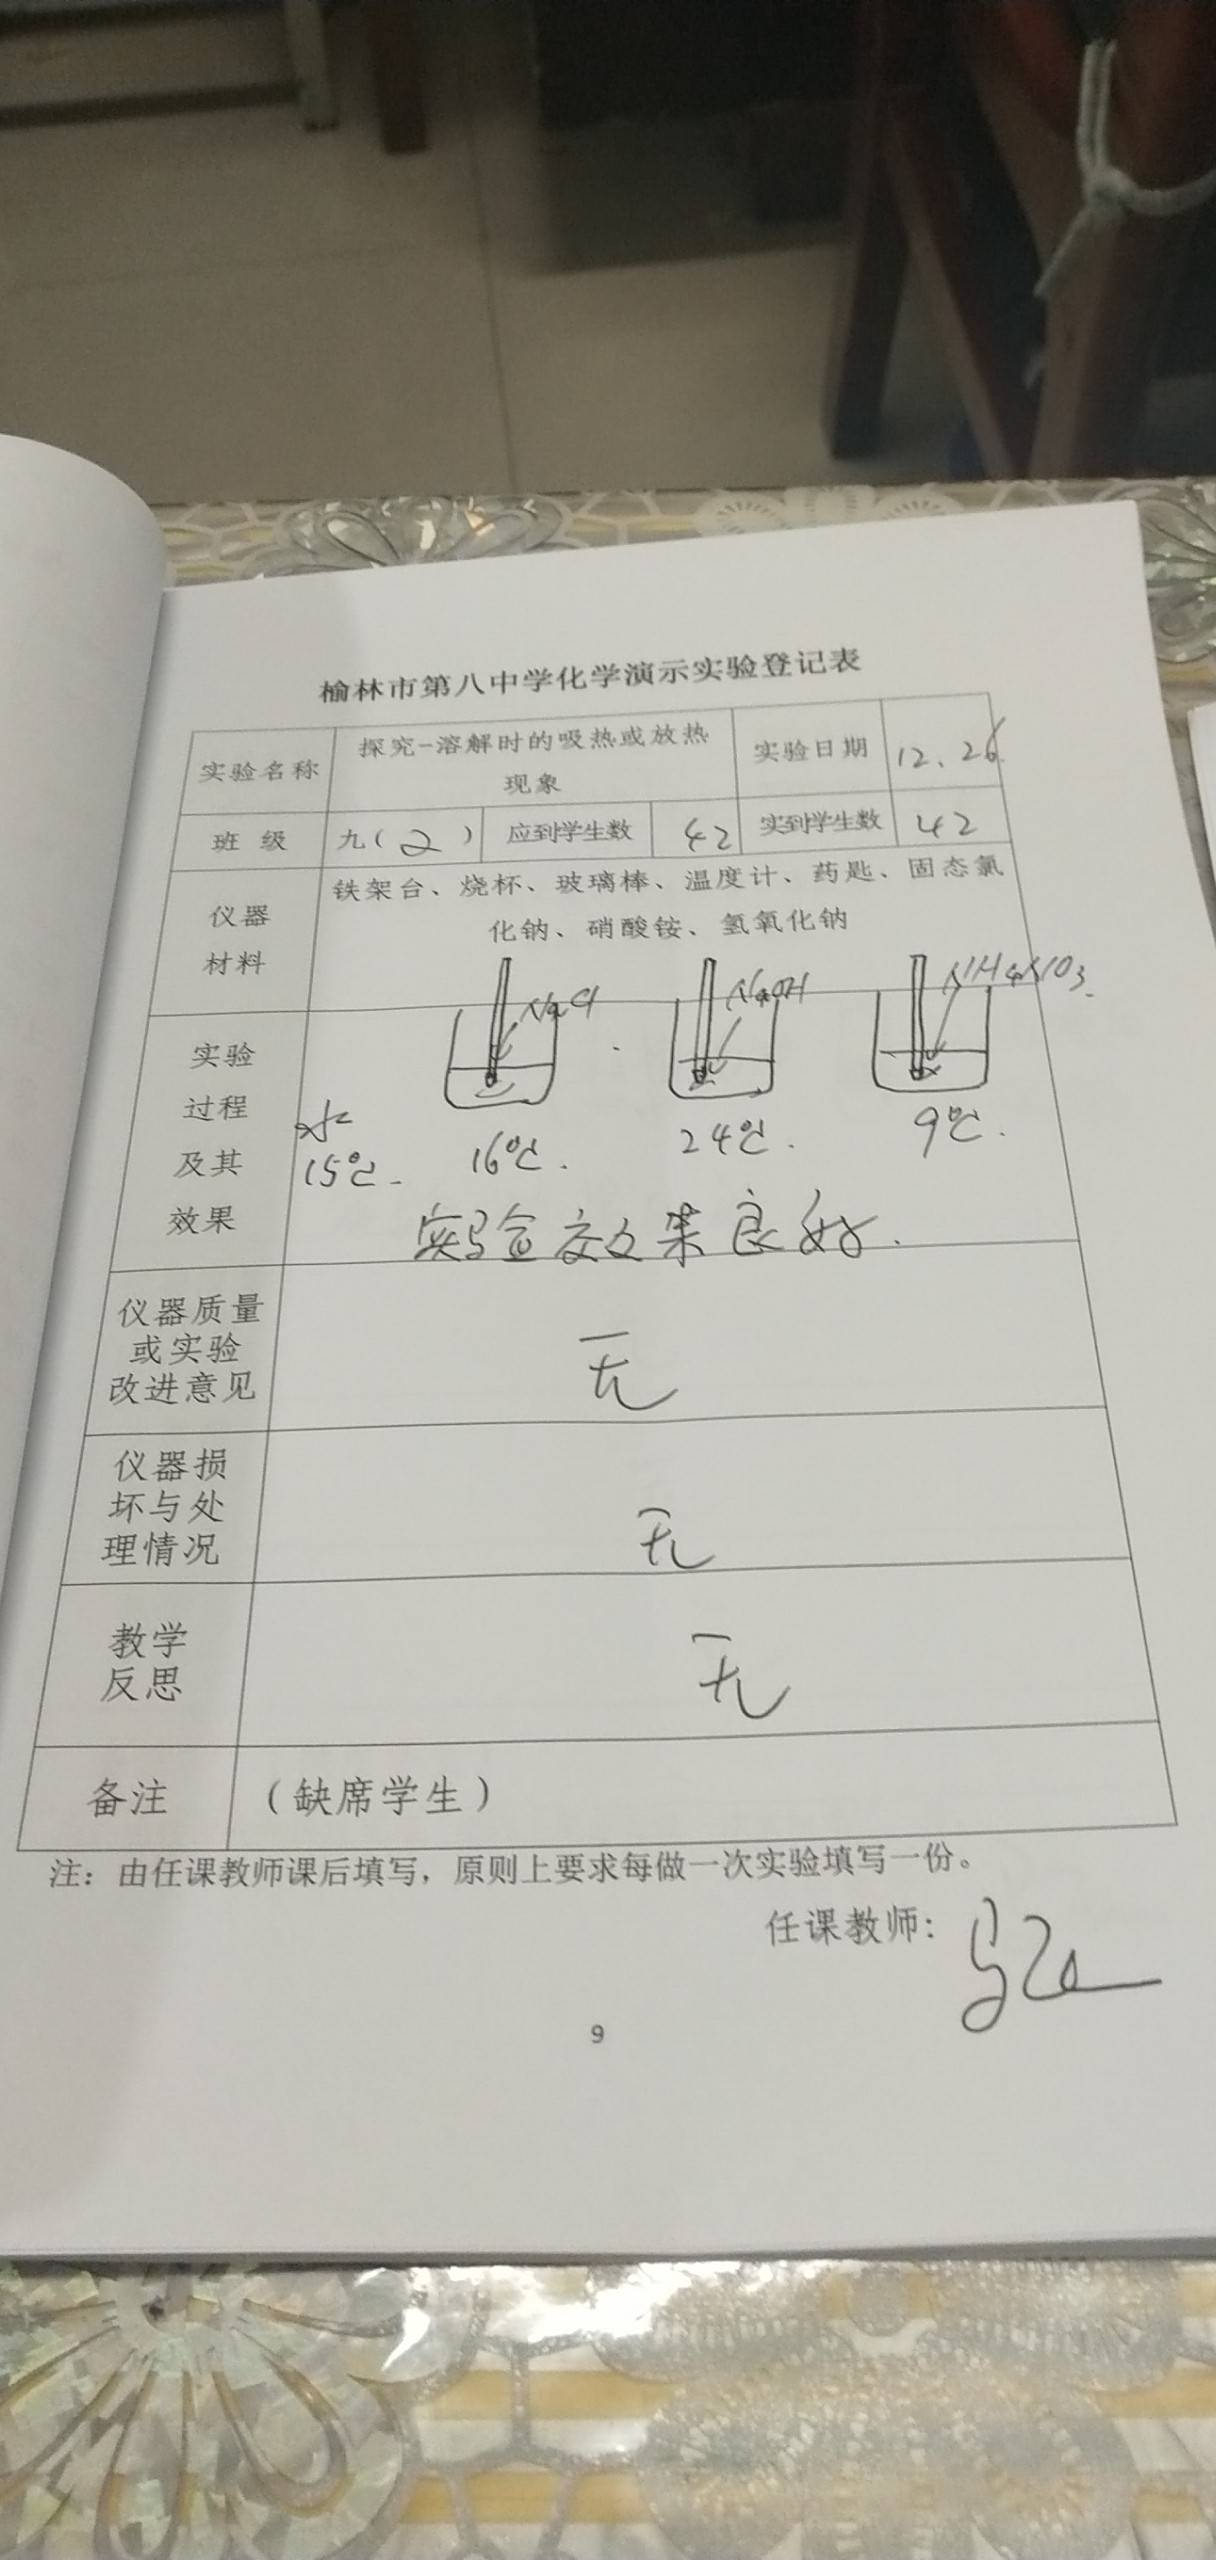 榆林市第八中学化学演示实验登记表
实验名称
探究-溶解时的吸热或放热
现象
实验日期
12、26
班 级
九(2)
应到学生数
42
实到学生数
42
仪器
材料
铁架台、烧杯、玻璃棒、温度计、药匙、固态氯
化钠、硝酸铵、氢氧化钠
实验
过程
及其
效果
NaCl
NaOH
NH4NO3.
水
15℃.
16℃.
24℃.
9℃.
实验效果良好.
仪器质量
或实验
改进意见
无
仪器损
坏与处
理情况
无
教学
反思
无
备注
(缺席学生)
注：由任课教师课后填写，原则上要求每做一次实验填写一份。
任课教师：
9